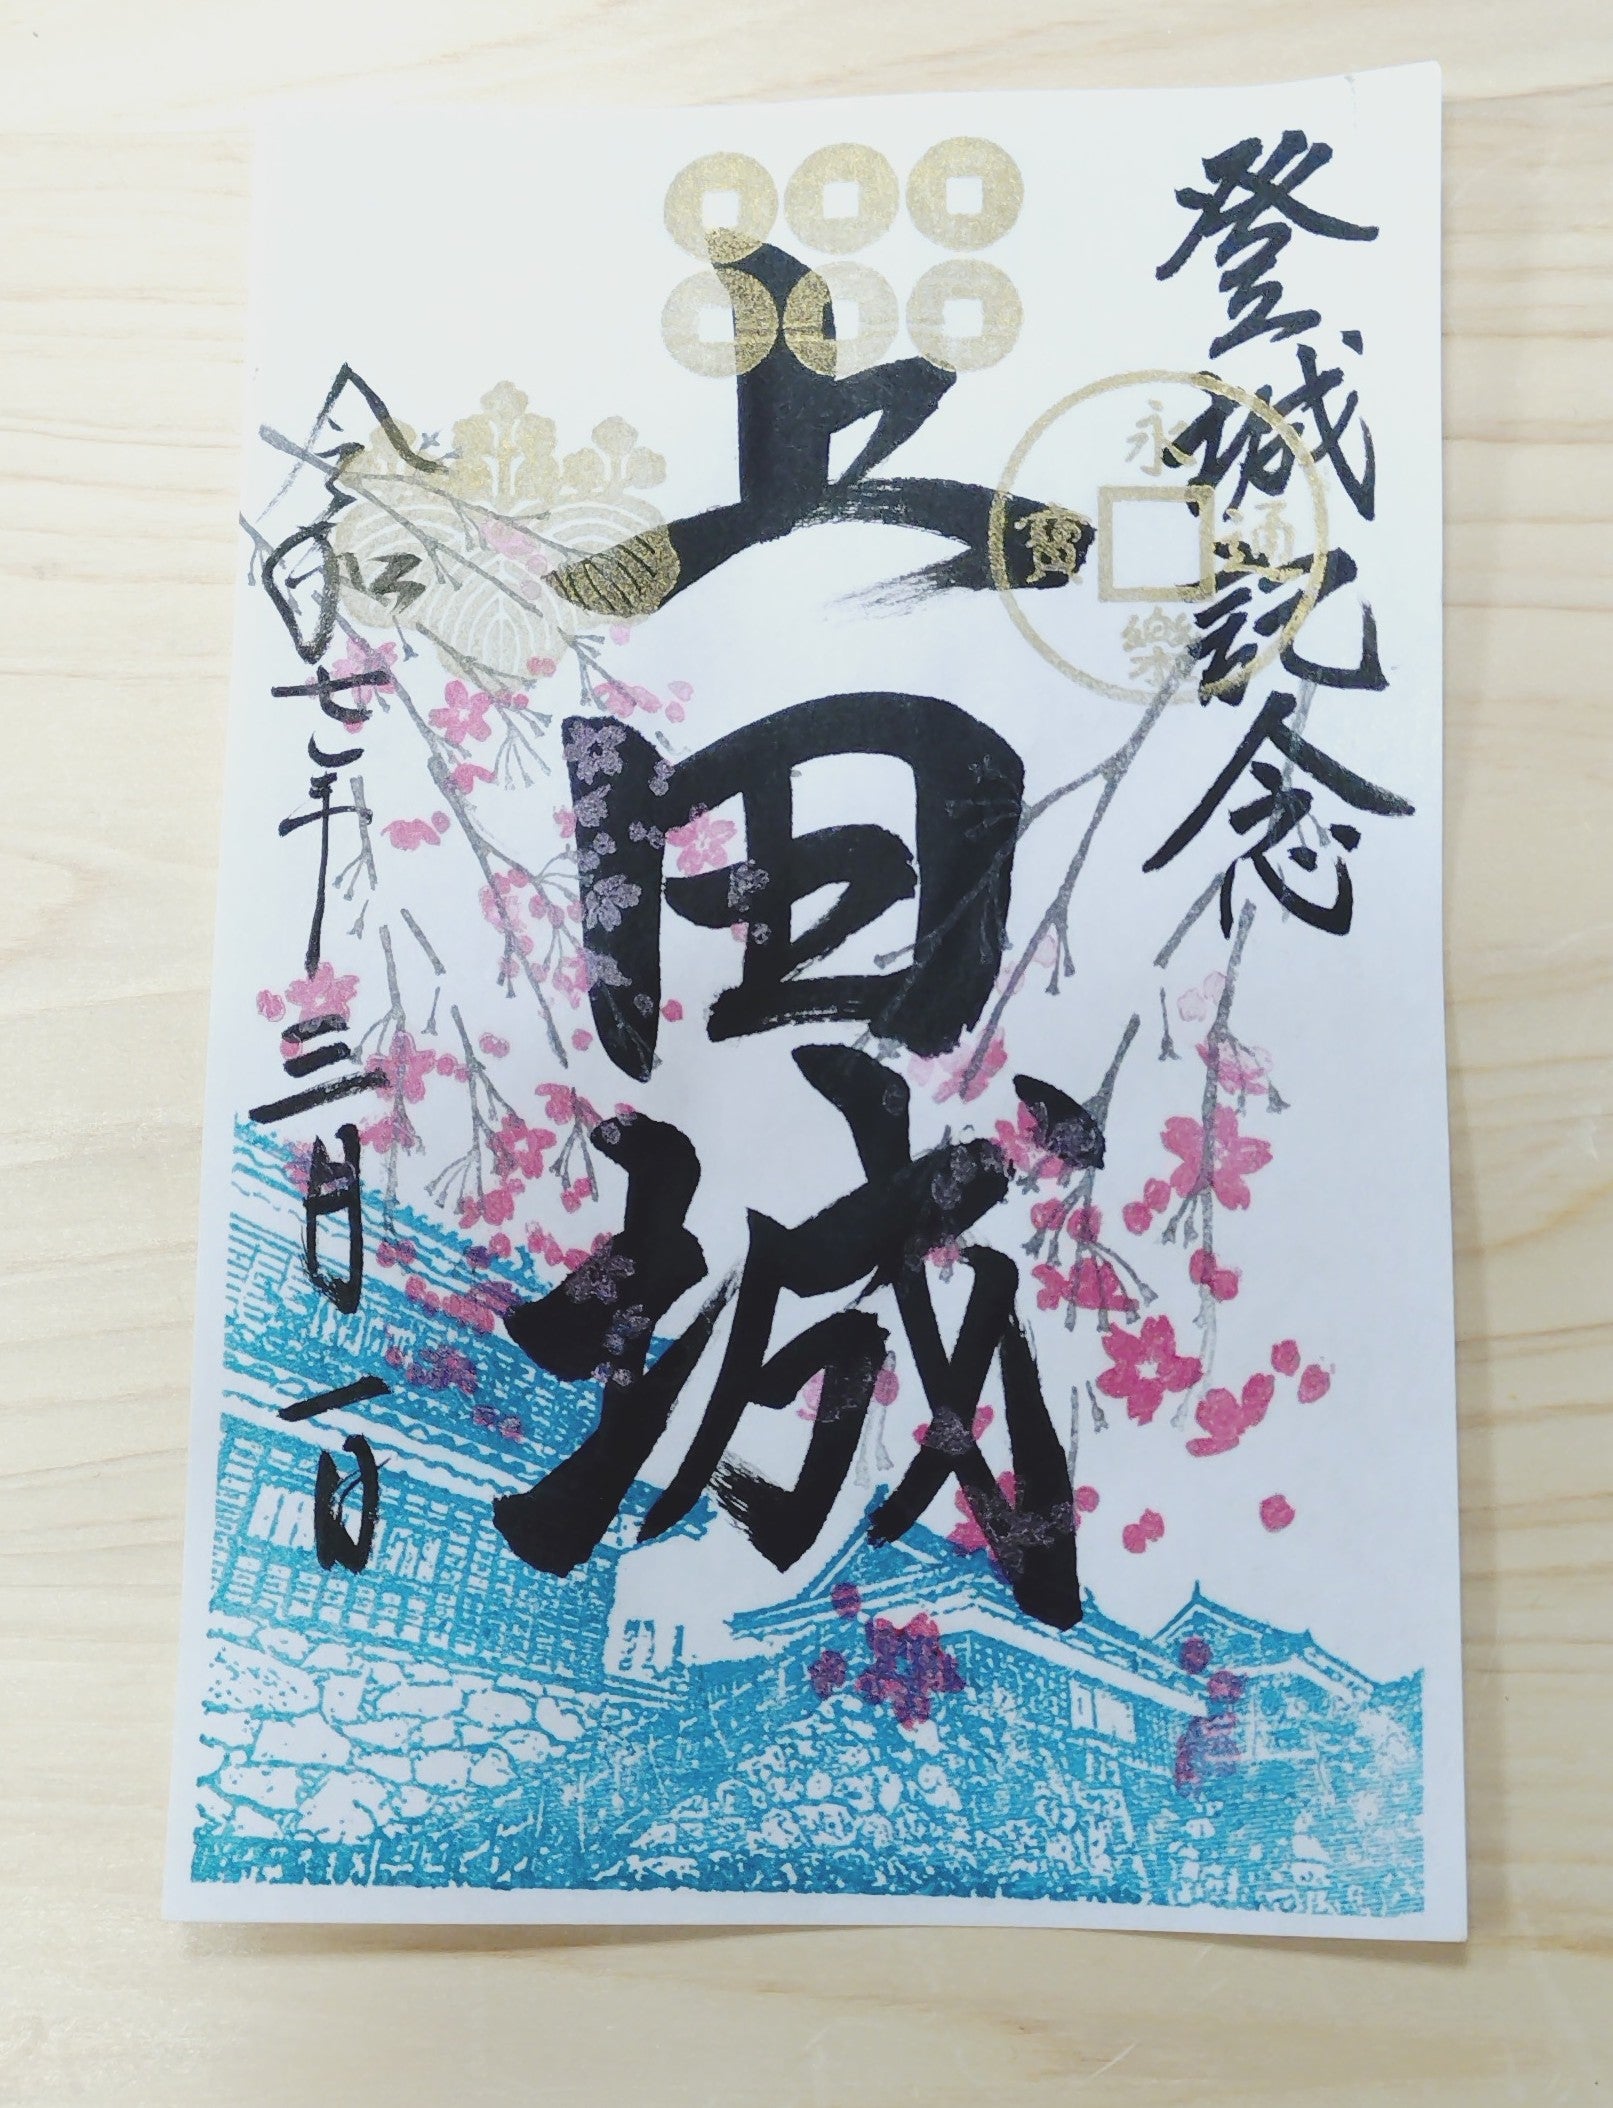 登城記念
上田城
令和七年三月一日
永樂通寳